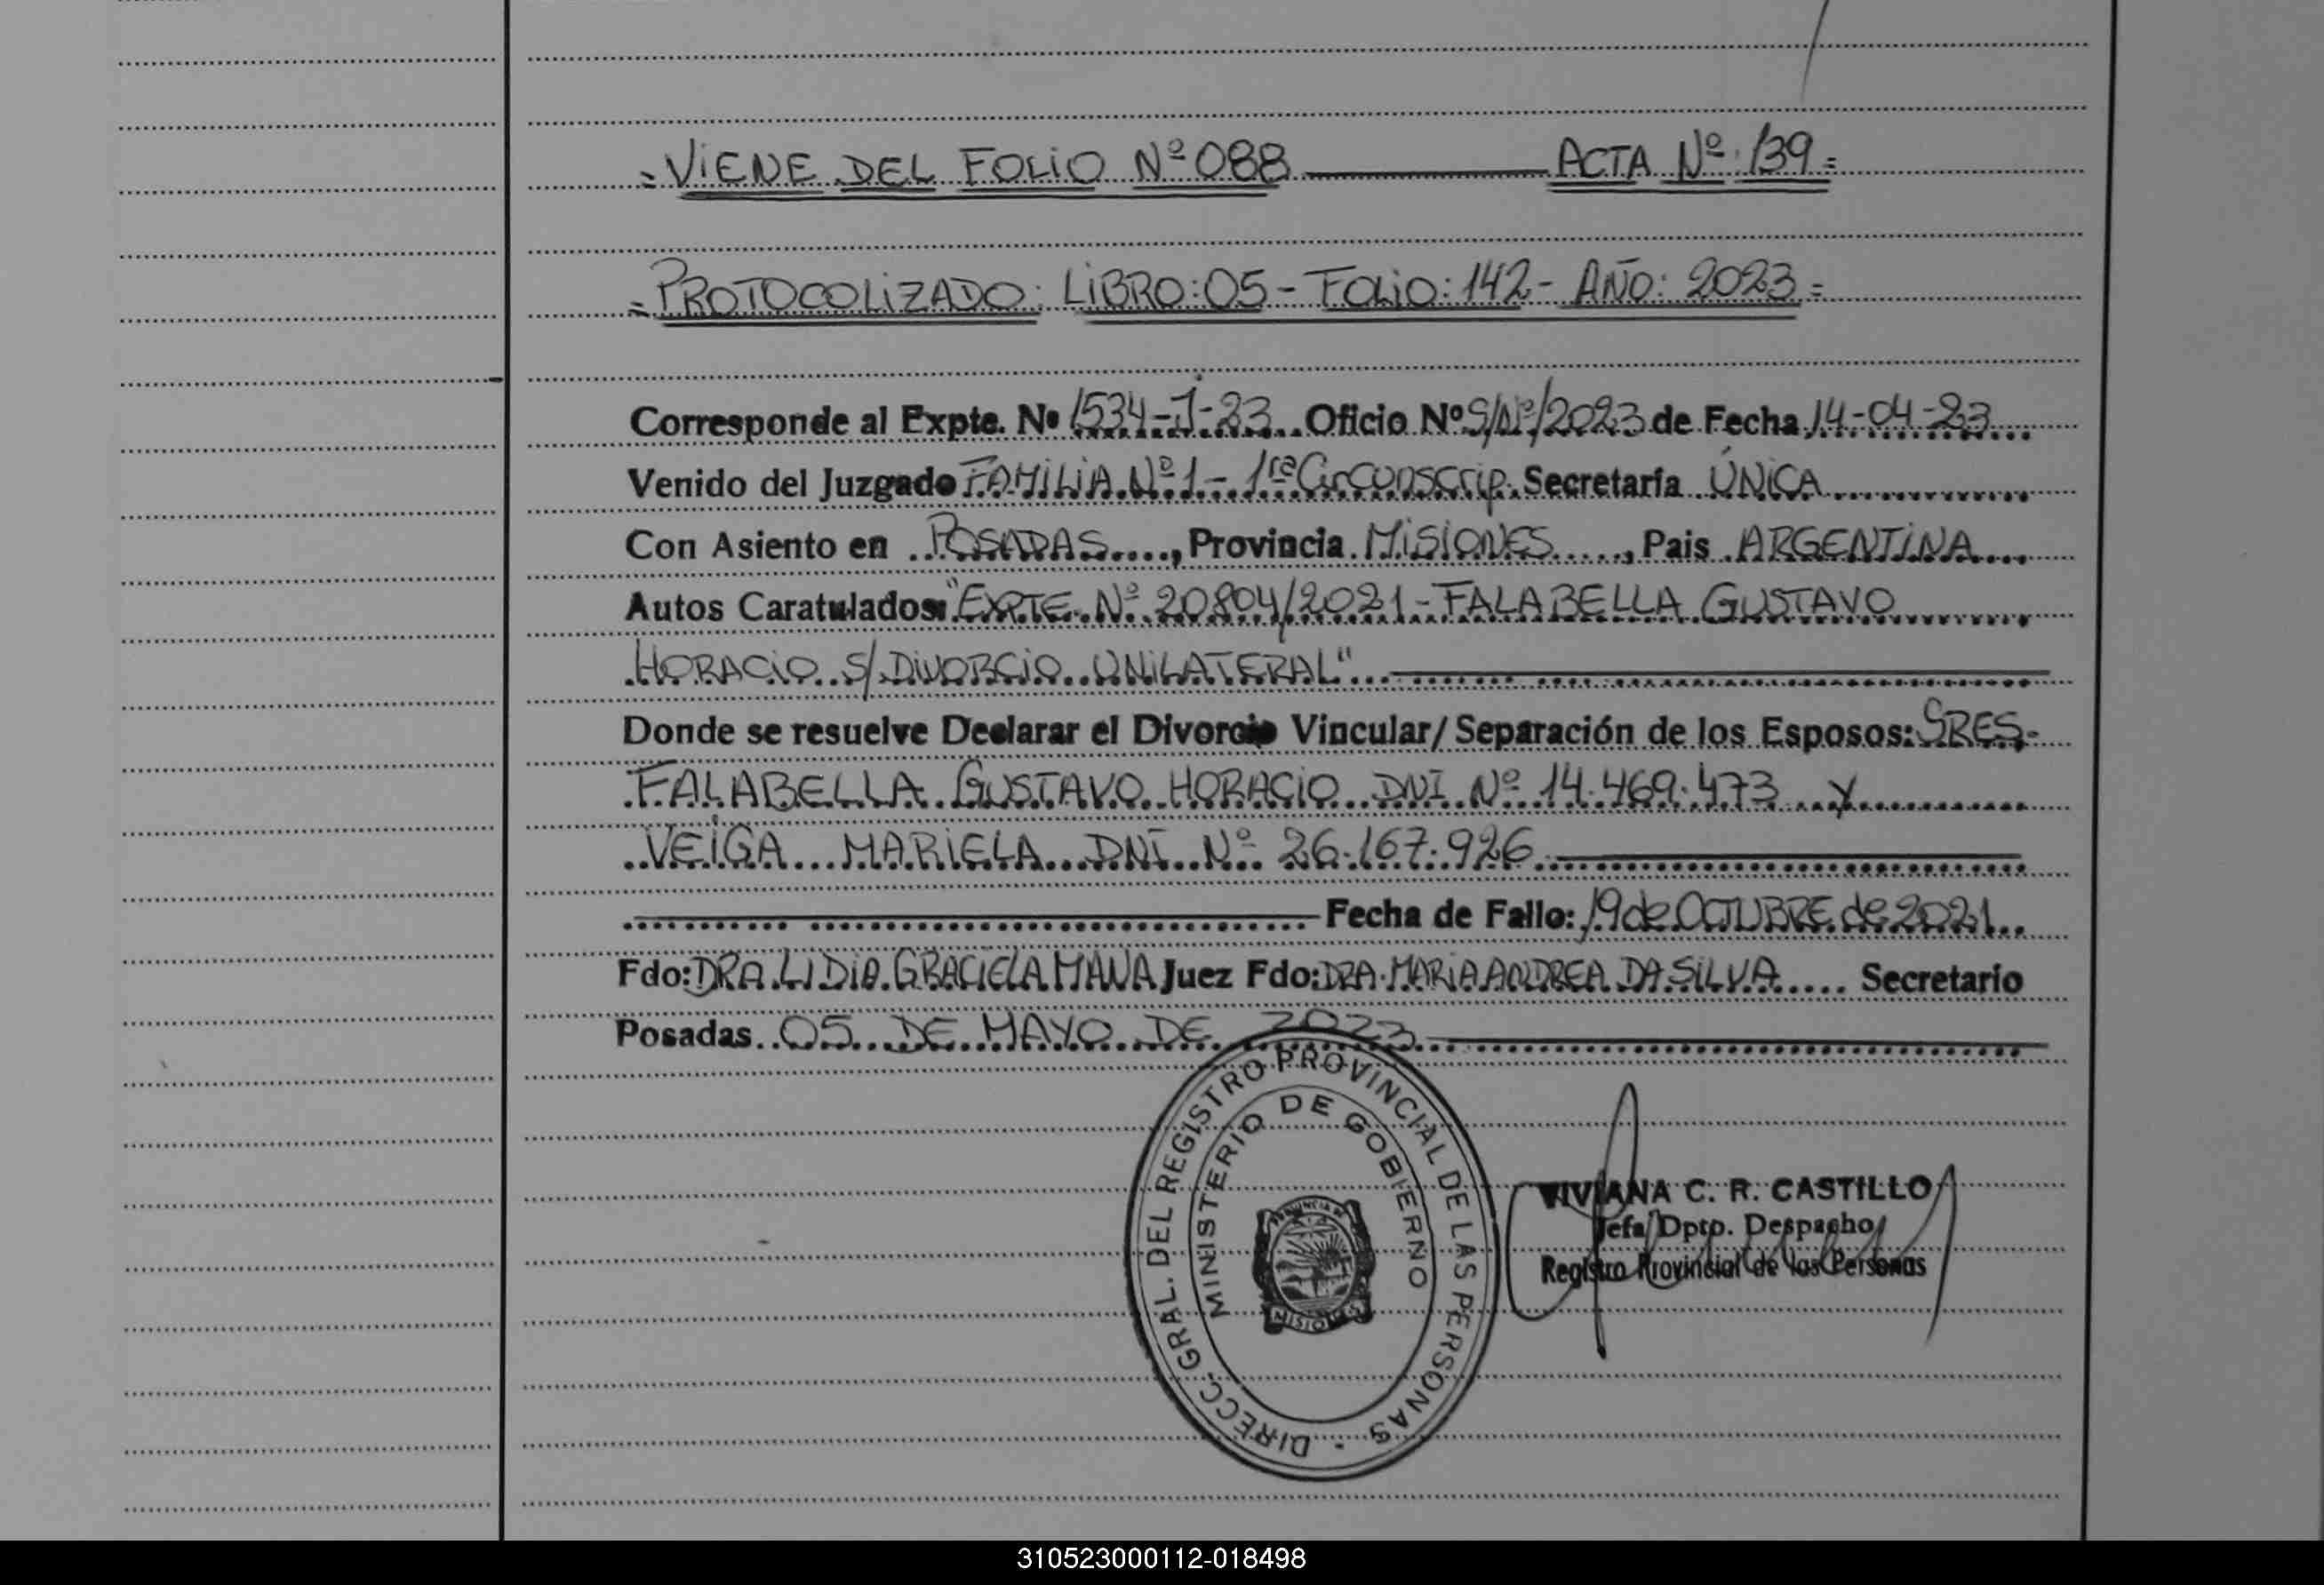 = VIENE DEL FOLIO Nº 088 ACTA Nº: 139 =
= PROTOCOLIZADO: LIBRO: 05 - FOLIO: 142 - AÑO: 2023 =
Corresponde al Expte. Nº 1534-J-23 Oficio Nº S/Nº/2023 de Fecha 14-04-23
Venido del Juzgado FAMILIA Nº 1 - 1ra Circunscrip. Secretaría ÚNICA
Con Asiento en POSADAS, Provincia MISIONES, Pais ARGENTINA
Autos Caratulados: "EXPTE. Nº 20804/2021 - FALABELLA GUSTAVO
HORACIO S/ DIVORCIO UNILATERAL"
Donde se resuelve Declarar el Divorcio Vincular/Separación de los Esposos: SRES.
FALABELLA GUSTAVO HORACIO DNI Nº 14.469.473 Y
VEIGA MARIELA DNI Nº 26.167.926
Fecha de Fallo: 19 de OCTUBRE de 2021
Fdo: DRA. LIDIA GRACIELA MANA Juez Fdo: DRA. MARIA ANDREA DA SILVA Secretario
Posadas 05 DE MAYO DE 2023
DIRECC. GRAL. DEL REGISTRO PROVINCIAL DE LAS PERSONAS
MINISTERIO DE GOBIERNO
PROVINCIA DE
MISIONES
VIVIANA C. R. CASTILLO
Jefa Dpto. Despacho
Registro Provincial de las Personas
310523000112-018498